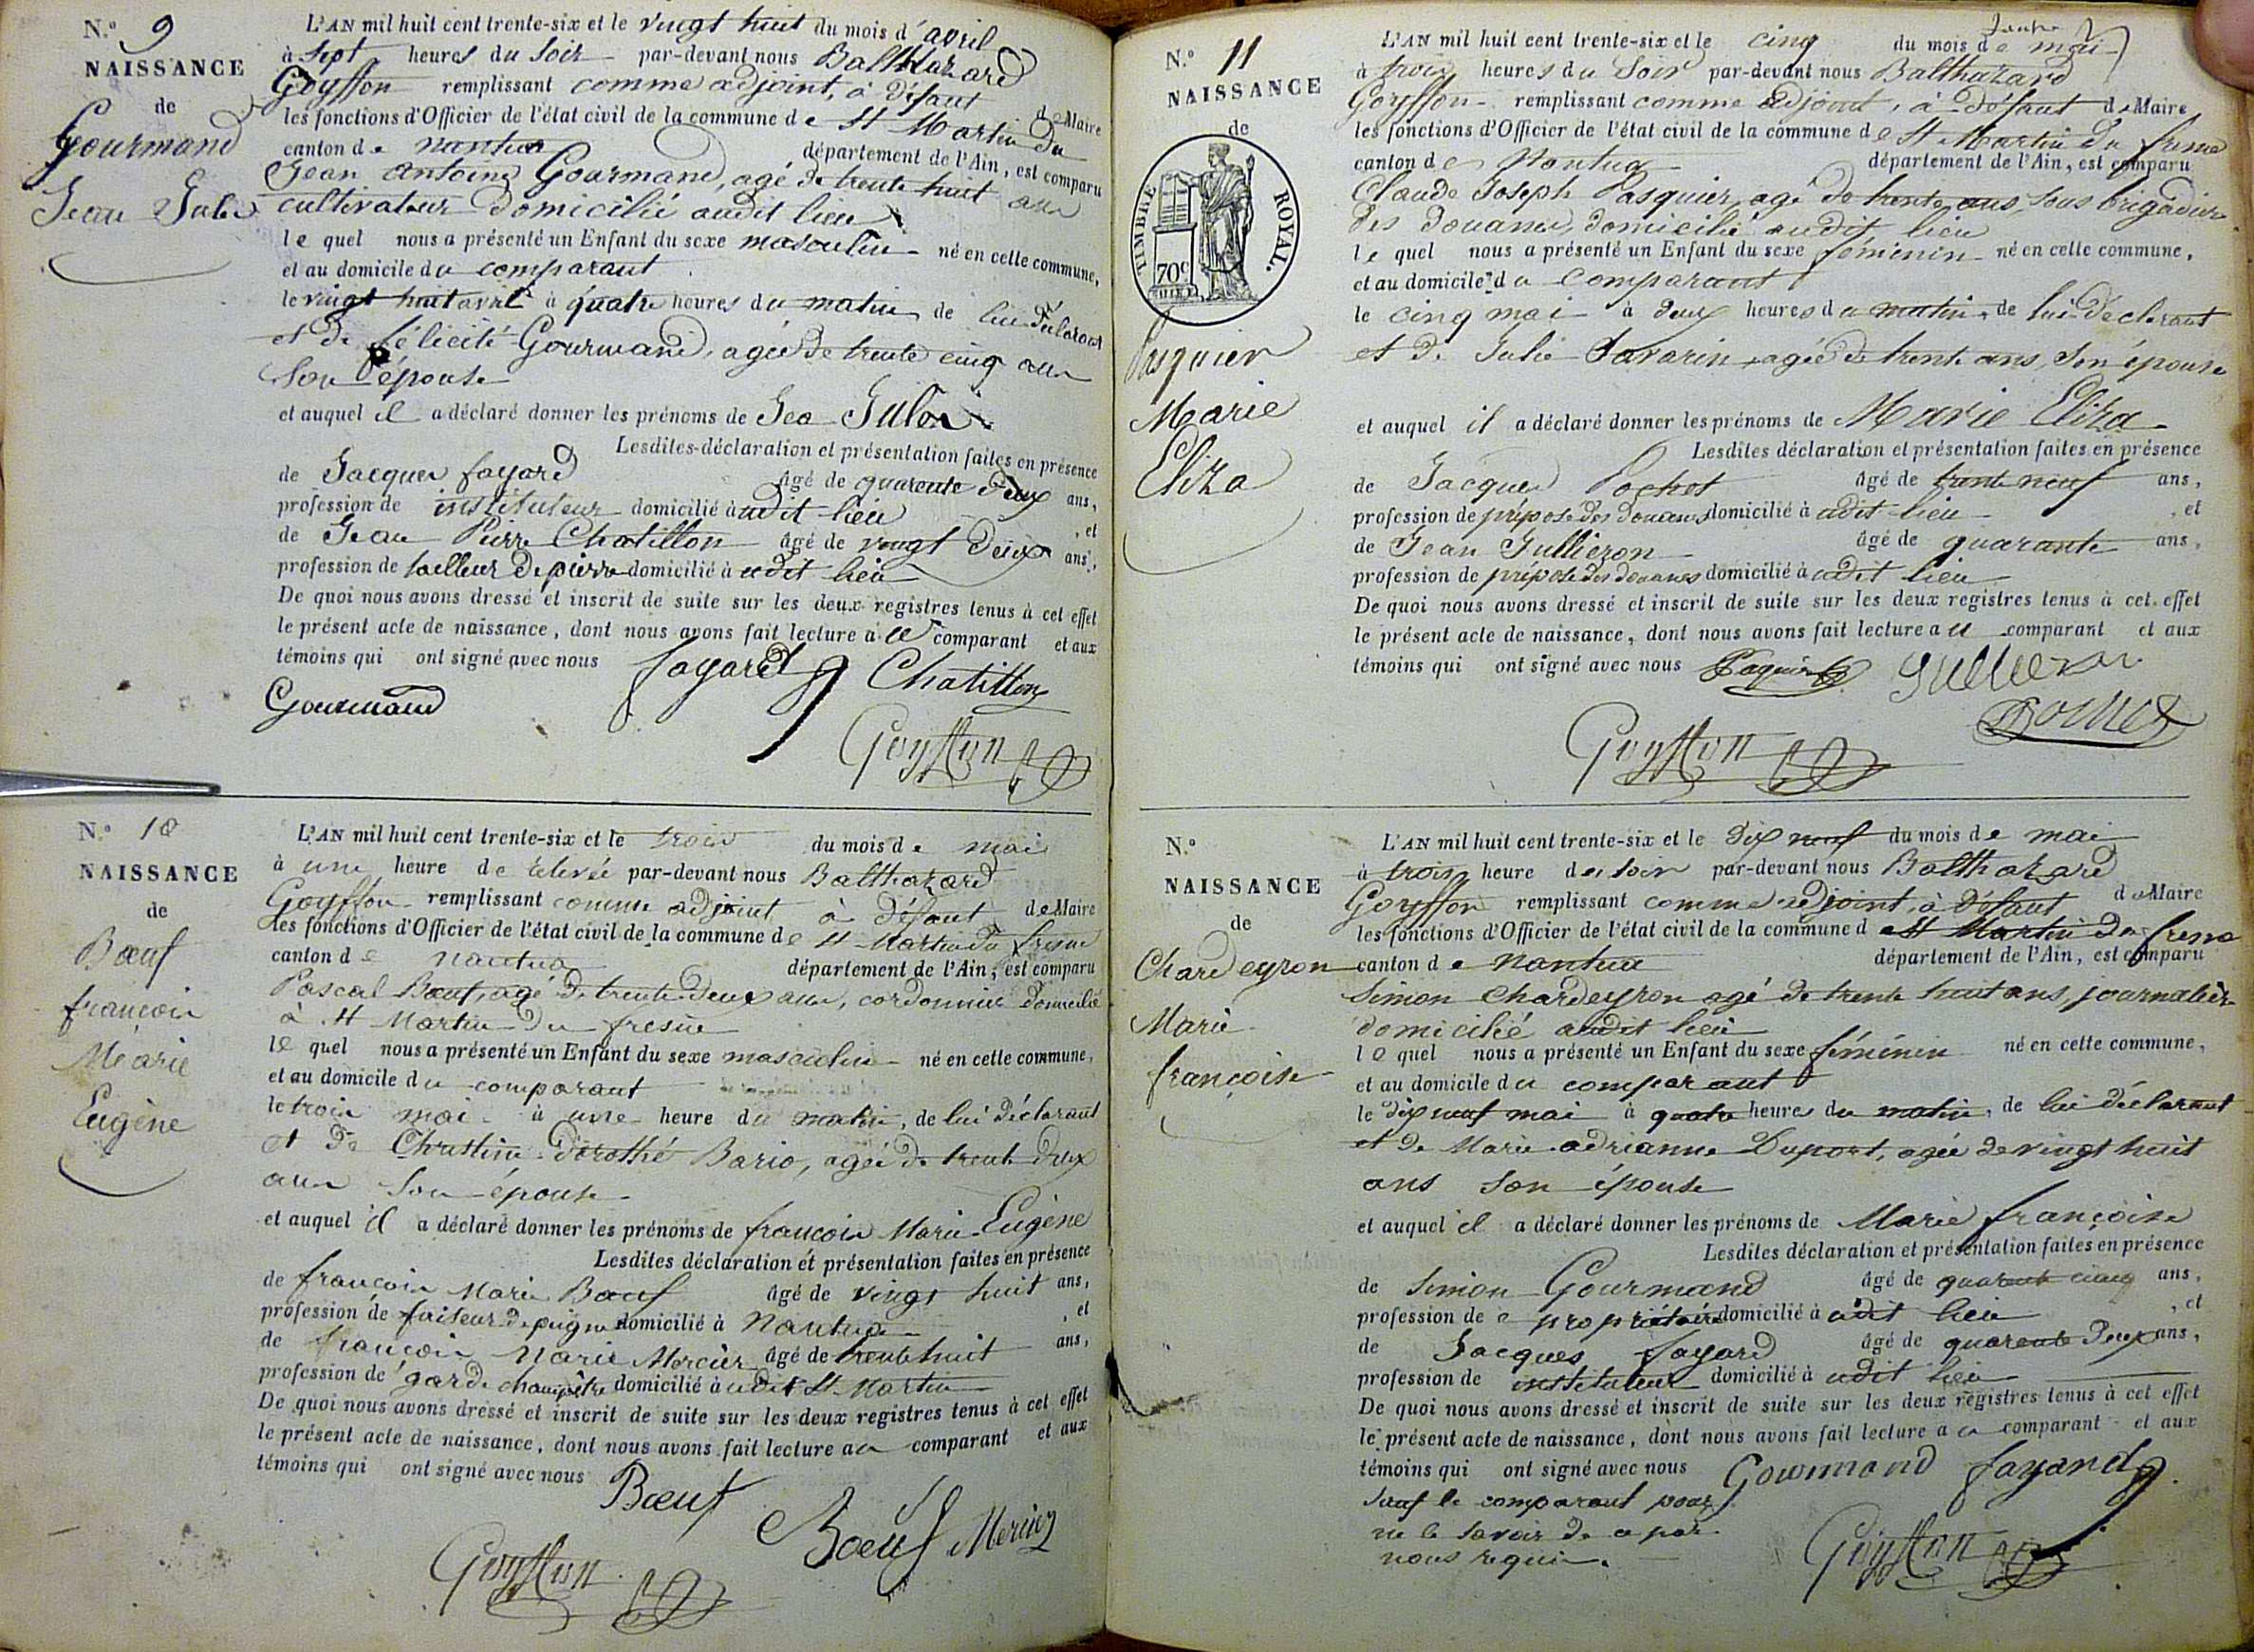 N.º 9
NAISSANCE
de
Gourmand
Jean Jules
L'AN mil huit cent trente-six et le vingt huit du mois d'avril
à sept heures du soir par-devant nous Balthazard
Goyffon remplissant comme adjoint, à défaut de Maire
les fonctions d'Officier de l'état civil de la commune de St Martin du
canton de nantua département de l'Ain, est comparu
Jean antoine Gourmand, agé de trente huit ans
cultivateur domicilié audit lieu
le quel nous a présenté un Enfant du sexe masculin né en cette commune,
et au domicile du comparant
le vingt huit avril à quatre heures du matin de lui déclarant
et de félicité Gourmand, agée de trente cinq ans
son épouse
et auquel il a déclaré donner les prénoms de Jea Jules
Lesdites déclaration et présentation faites en présence
de Jacques fayard âgé de quarente deux ans,
profession de instituteur domicilié à udit lieu , et
de Jean Pierre Chatillon âgé de vingt deux ans,
profession de tailleur de pierre domicilié à udit lieu
De quoi nous avons dressé et inscrit de suite sur les deux registres tenus à cet effet
le présent acte de naissance, dont nous avons fait lecture a ce comparant et aux
témoins qui ont signé avec nous fayard Chatillon
Gourmand
Goyffon
N.º 10
NAISSANCE
de
Bœuf
françois
Marie
Eugène
L'AN mil huit cent trente-six et le trois du mois de mai
à une heure de relevée par-devant nous Balthazard
Goyffon remplissant comme adjoint à défaut de Maire
les fonctions d'Officier de l'état civil de la commune de St Martin du fresne
canton de nantua département de l'Ain, est comparu
Pascal Bœuf, agé de trente deux ans, cordonnier domicilié
à St Martin du fresne
le quel nous a présenté un Enfant du sexe masculin né en cette commune,
et au domicile du comparant
le trois mai à une heure du matin, de lui déclarant
et de Christine dorothé Bario, agée de trente deux
ans son épouse
et auquel il a déclaré donner les prénoms de françois Marie Eugène
Lesdites déclaration et présentation faites en présence
de françois Marie Bœuf âgé de vingt huit ans,
profession de faiseur de peignes domicilié à Nantua , et
de françois Marie Mercier âgé de trente huit ans,
profession de garde champêtre domicilié à udit St Martin
De quoi nous avons dressé et inscrit de suite sur les deux registres tenus à cet effet
le présent acte de naissance, dont nous avons fait lecture au comparant et aux
témoins qui ont signé avec nous Bœuf
Bœuf Mercier
Goyffon
N.º 11
NAISSANCE
de
TIMBRE ROYAL.
70c
Pasquier
Marie
Eliza
L'AN mil huit cent trente-six et le cinq du mois de mai
à trois heures du soir par-devant nous Balthazard
Goyffon remplissant comme adjoint, à défaut de Maire
les fonctions d'Officier de l'état civil de la commune de St Martin du frene
canton de Nantua département de l'Ain, est comparu
Claude Joseph Pasquier, agé de trente ans, sous brigadier
des douanes, domicilié audit lieu
le quel nous a présenté un Enfant du sexe féminin né en cette commune,
et au domicile du comparant
le cinq mai à deux heures du matin, de lui déclarant
et de Julie Savarin, agée de trente ans, son épouse
et auquel il a déclaré donner les prénoms de Marie Eliza
Lesdites déclaration et présentation faites en présence
de Jacques Pochet âgé de trente neuf ans,
profession de préposé des douanes domicilié à udit lieu , et
de Jean Jullieron âgé de quarante ans,
profession de préposé des douanes domicilié à udit lieu
De quoi nous avons dressé et inscrit de suite sur les deux registres tenus à cet effet
le présent acte de naissance, dont nous avons fait lecture a u comparant et aux
témoins qui ont signé avec nous
Goyffon
N.º
NAISSANCE
de
Chardeyron
Marie
françoise
L'AN mil huit cent trente-six et le dix neuf du mois de mai
à trois heure du soir par-devant nous Balthazard
Goyffon remplissant comme adjoint, à défaut de Maire
les fonctions d'Officier de l'état civil de la commune de St Martin du frene
canton de nantua département de l'Ain, est comparu
Simon Chardeyron agé de trente huit ans, journalier
domicilié audit lieu
le quel nous a présenté un Enfant du sexe féminin né en cette commune,
et au domicile du comparant
le dix neuf mai à quatre heures du matin, de lui déclarant
et de Marie adrianne Duport, agée de vingt huit
ans son épouse
et auquel il a déclaré donner les prénoms de Marie françoise
Lesdites déclaration et présentation faites en présence
de Simon Gourmand âgé de quarente cinq ans,
profession de propriétaire domicilié à udit lieu , et
de Jacques fayard âgé de quarente deux ans,
profession de instituteur domicilié à udit lieu
De quoi nous avons dressé et inscrit de suite sur les deux registres tenus à cet effet
le présent acte de naissance, dont nous avons fait lecture a u comparant et aux
témoins qui ont signé avec nous Gourmand fayard
sauf le comparant pour
ne le savoir de ce par
nous requis.
Goyffon